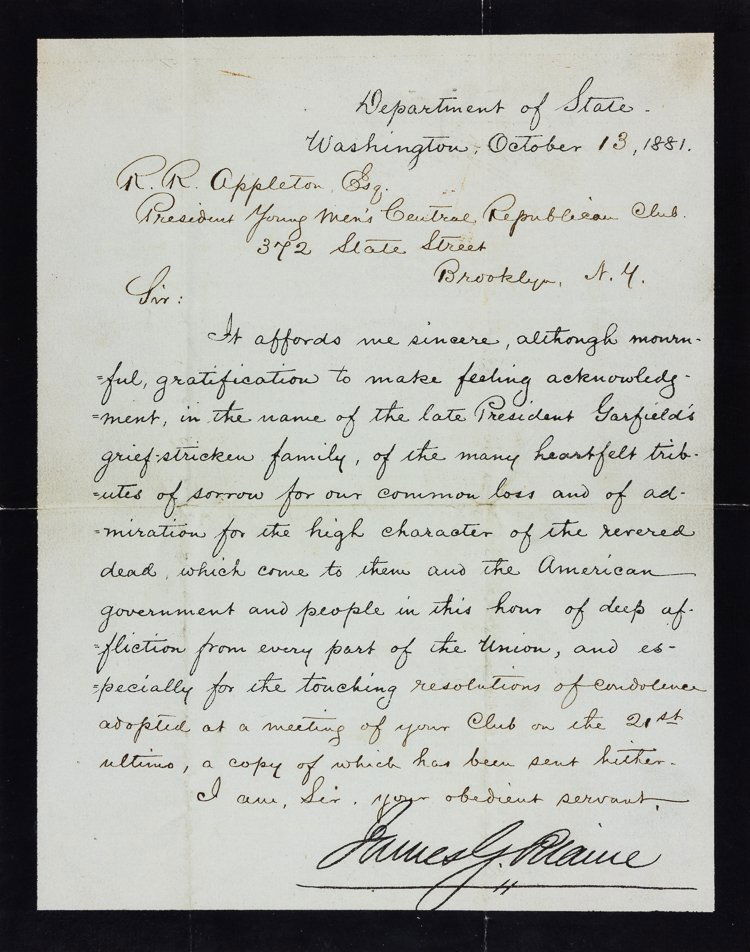 Department of State.
Washington, October 13, 1881.
R. R. Appleton, Esq.
President Young Men's Central Republican Club.
372 State Street
Brooklyn, N.Y.
Sir:
It affords me sincere, although mourn-
=ful, gratification to make feeling acknowledg-
=ment, in the name of the late President Garfield's
grief-stricken family, of the many heartfelt trib-
=utes of sorrow for our common loss and of ad-
=miration for the high character of the revered
dead, which come to them and the American
government and people in this hour of deep af-
=fliction from every part of the Union, and es-
=pecially for the touching resolutions of condolence
adopted at a meeting of your Club on the 21st
ultimo, a copy of which has been sent hither.
I am, Sir, your obedient servant,
James G. Blaine